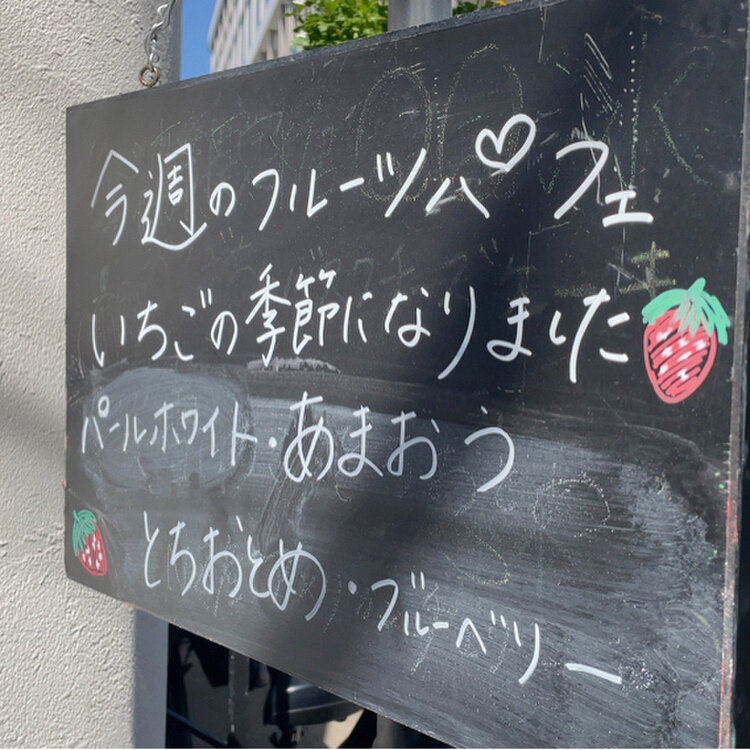 今週のフルーツパフェ
いちごの季節になりました
パールホワイト・あまおう
とちおとめ・ブルーベリー